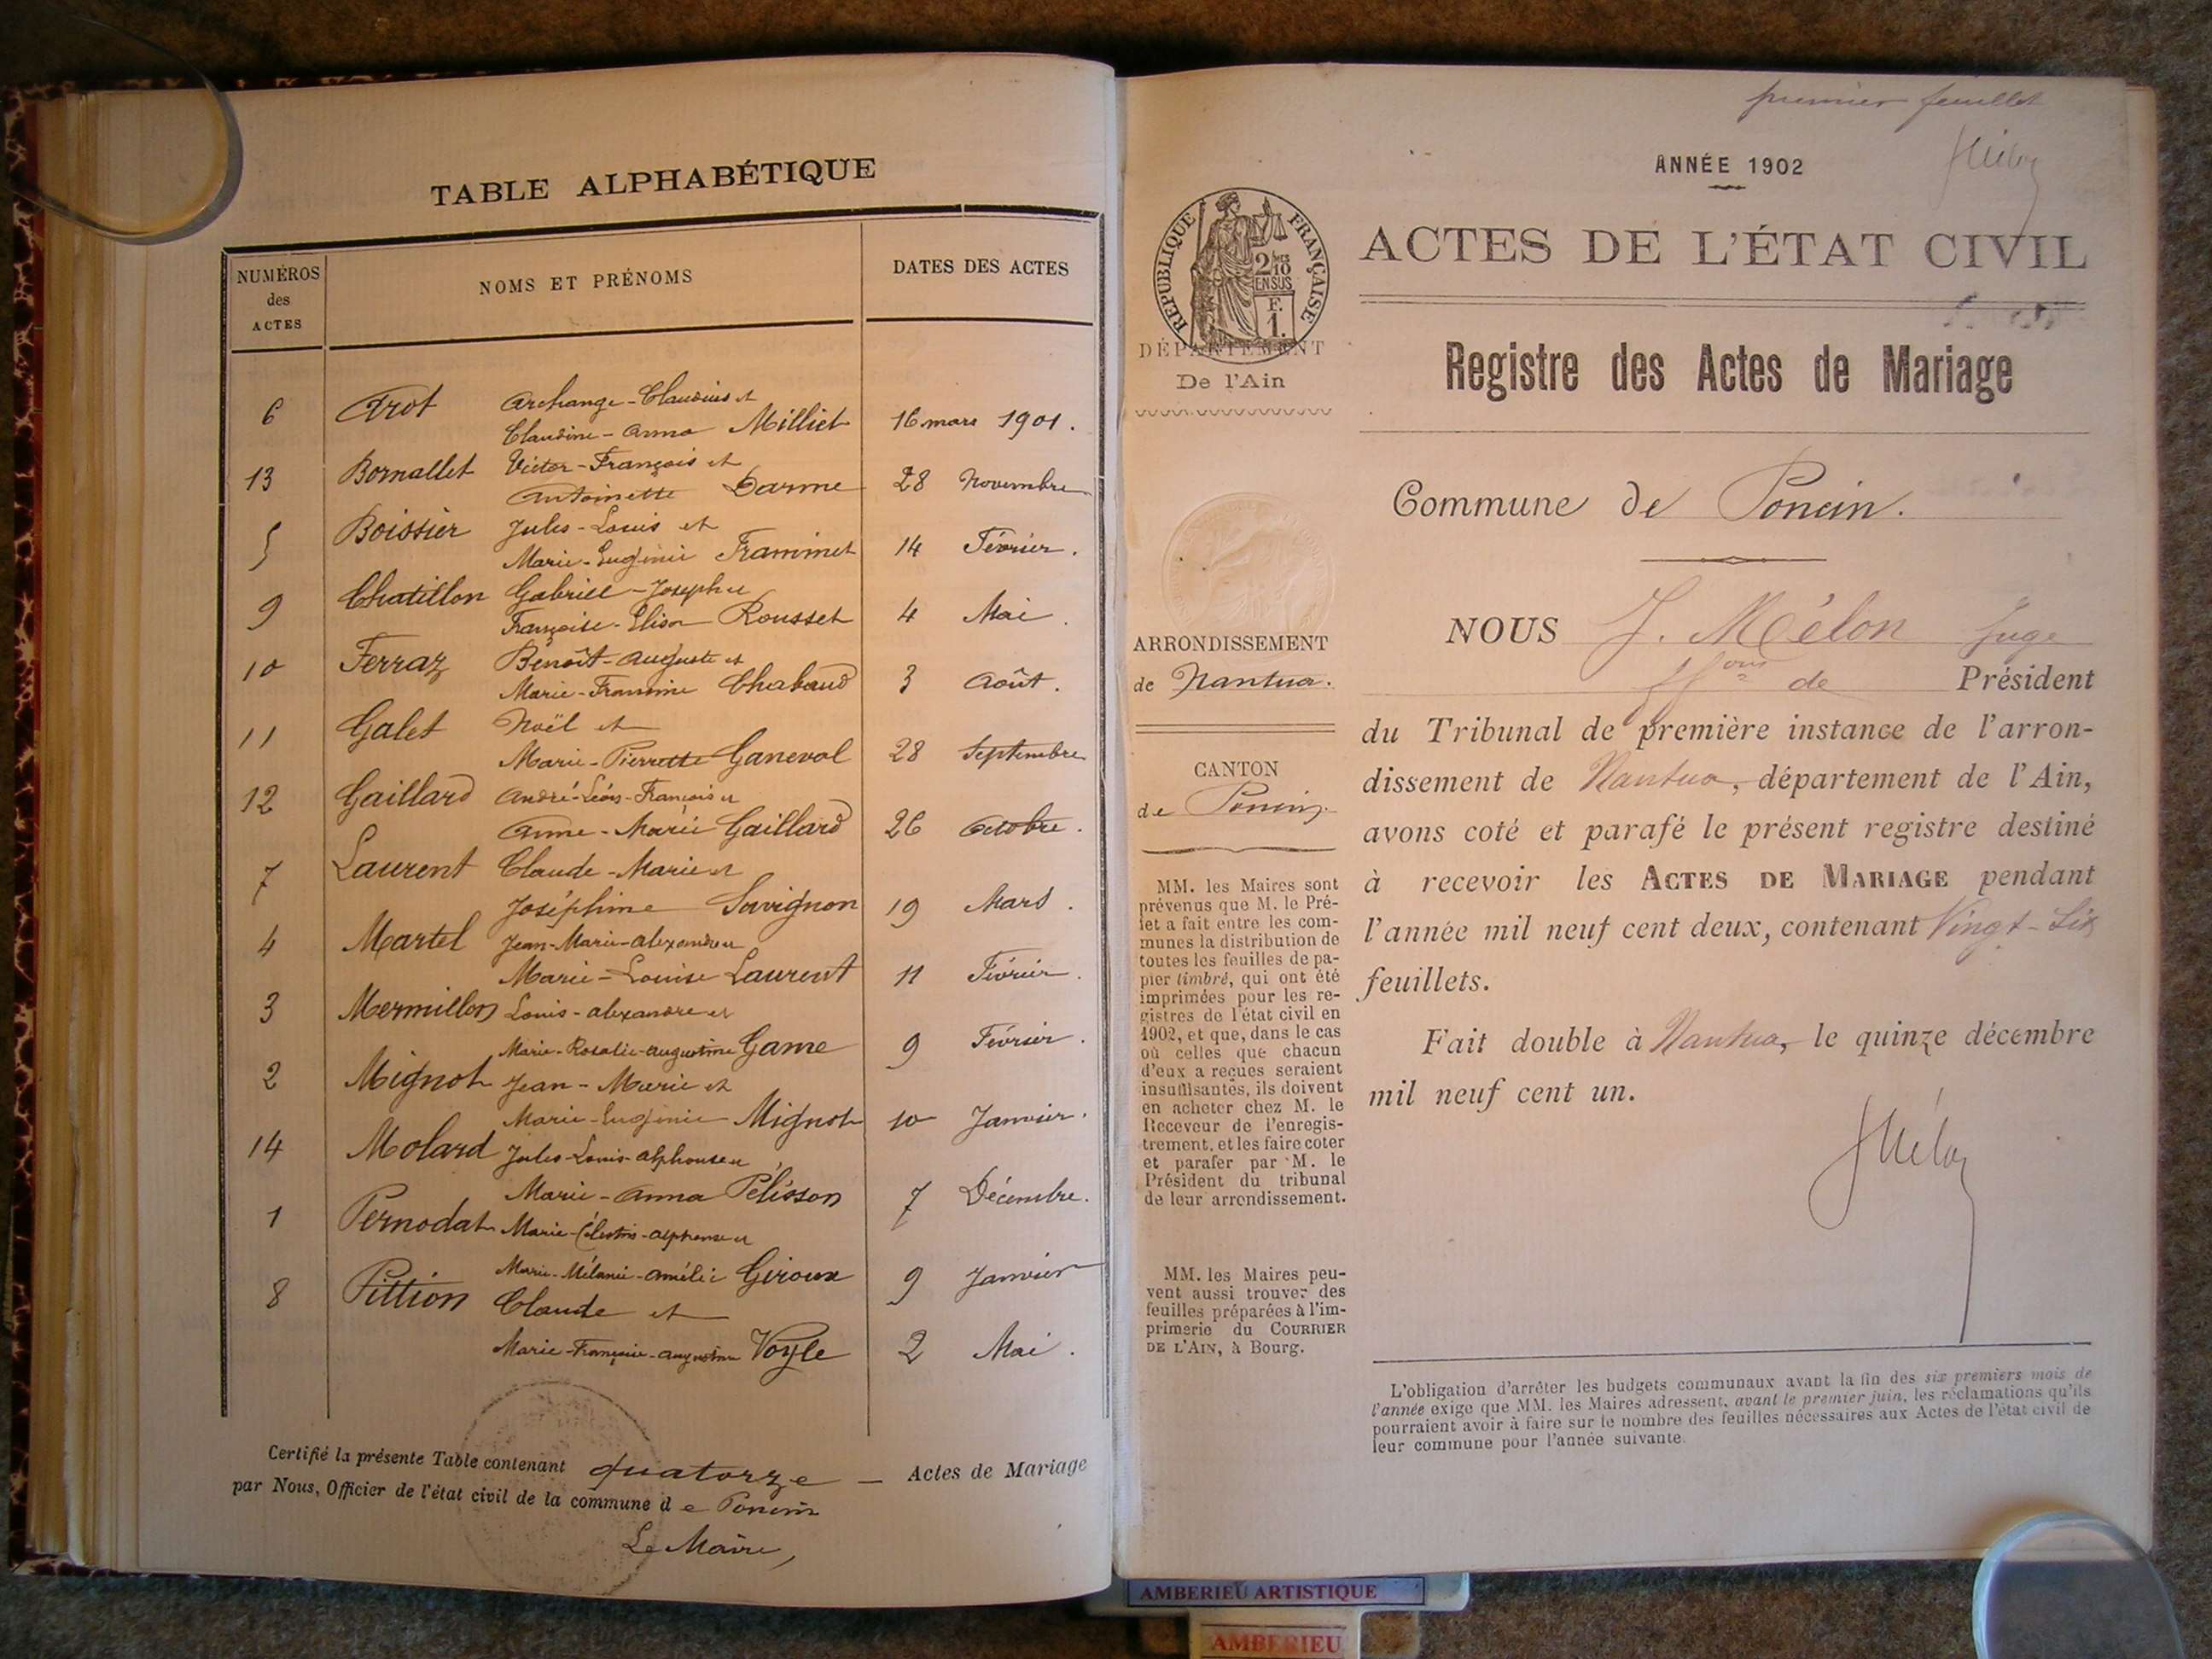 TABLE ALPHABÉTIQUE
NUMÉROS
des
ACTES
NOMS ET PRÉNOMS
DATES DES ACTES
6 Arot Archange-Claudius et
Claudine-Anna Milliet 16 mars 1901.
13 Bornallet Victor-François et
Antoinette Darme 28 Novembre
5 Boissier Jules-Louis et
Marie-Eugénie Framinet 14 Février.
9 Chatillon Gabriel-Joseph et
Françoise-Elisa Rousset 4 Mai.
10 Ferraz Benoît-Auguste et
Marie-Francine Chabaud 3 Août.
11 Galet Noël et
Marie-Pierrette Ganeval 28 Septembre
12 Gaillard André-Léon-François et
Anne-Marie Gaillard 26 Octobre.
7 Laurent Claude-Marie et
Joséphine Savignon 19 Mars.
4 Martel Jean-Marie-Alexandre et
Marie-Louise Laurent 11 Février.
3 Mermillon Louis-Alexandre et
Marie-Rosalie-Augustine Game 9 Février.
2 Mignot Jean-Marie et
Marie-Eugénie Mignot 10 Janvier.
14 Molard Jules-Louis-Alphonse et
Marie-Anna Pélisson 7 Décembre.
1 Pernodat Marie-Célestin-Alphonse et
Marie-Mélanie-Amélie Giroux 9 Janvier
8 Pittion Claude et
Marie-Françoise-Augustine Voyle 2 Mai.
Certifié la présente Table contenant quatorze — Actes de Mariage
par Nous, Officier de l'état civil de la commune de Poncin
Le Maire,
premier feuillet
JMélon
ANNÉE 1902
ACTES DE L'ÉTAT CIVIL
Registre des Actes de Mariage
Commune de Poncin.
NOUS J. Mélon Juge
ffons de Président
du Tribunal de première instance de l'arron-
dissement de Nantua, département de l'Ain,
avons coté et parafé le présent registre destiné
à recevoir les ACTES DE MARIAGE pendant
l'année mil neuf cent deux, contenant Vingt-Six
feuillets.
Fait double à Nantua, le quinze décembre
mil neuf cent un.
JMélon
L'obligation d'arrêter les budgets communaux avant la fin des six premiers mois de
l'année exige que MM. les Maires adressent, avant le premier juin, les réclamations qu'ils
pourraient avoir à faire sur le nombre des feuilles nécessaires aux Actes de l'état civil de
leur commune pour l'année suivante.
RÉPUBLIQUE FRANÇAISE
2/10
EN SUS
F.
1.
DÉPARTEMENT
De l'Ain
ARRONDISSEMENT
de Nantua.
CANTON
de Poncin
MM. les Maires sont
prévenus que M. le Pré-
fet a fait entre les com-
munes la distribution de
toutes les feuilles de pa-
pier timbré, qui ont été
imprimées pour les re-
gistres de l'état civil en
1902, et que, dans le cas
où celles que chacun
d'eux a reçues seraient
insuffisantes, ils doivent
en acheter chez M. le
Receveur de l'enregis-
trement, et les faire coter
et parafer par M. le
Président du tribunal
de leur arrondissement.
MM. les Maires peu-
vent aussi trouver des
feuilles préparées à l'im-
primerie du COURRIER
DE L'AIN, à Bourg.
AMBERIEU ARTISTIQUE
AMBERIEU